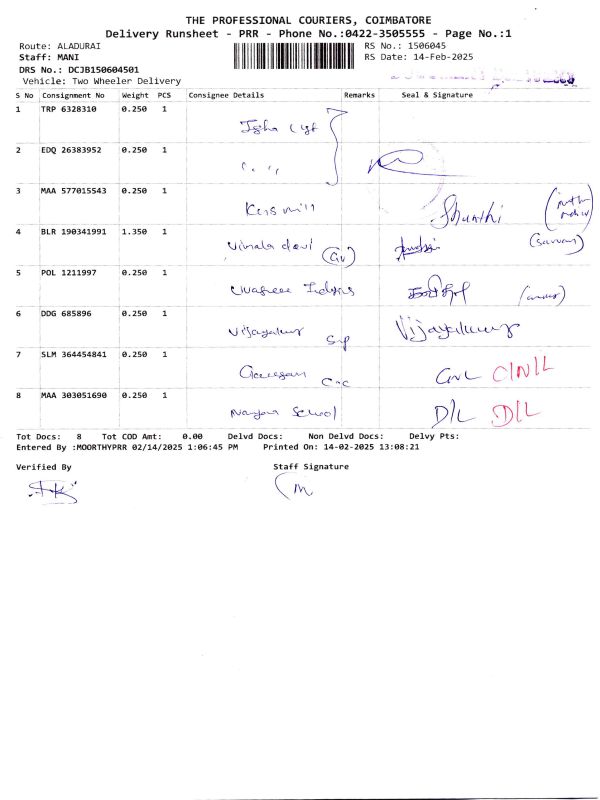 THE PROFESSIONAL COURIERS, COIMBATORE
Delivery Runsheet - PRR - Phone No.:0422-3505555 - Page No.:1
Route: ALADURAI
RS No.: 1506045
Staff: MANI
RS Date: 14-Feb-2025
DRS No.: DCJB150604501
Vehicle: Two Wheeler Delivery
S No Consignment No Weight PCS Consignee Details Remarks Seal & Signature
1 TRP 6328310 0.250 1
2 EDQ 26383952 0.250 1
3 MAA 577015543 0.250 1 Shanthi
4 BLR 190341991 1.350 1 Vimala devi
5 POL 1211997 0.250 1
6 DDG 685896 0.250 1 Vijayakumar Vijayakumar
7 SLM 364454841 0.250 1 Ganesan CNL C/N/L
8 MAA 303051690 0.250 1 School D/L D/L
Tot Docs: 8 Tot COD Amt: 0.00 Delvd Docs: Non Delvd Docs: Delvy Pts:
Entered By :MOORTHYPRR 02/14/2025 1:06:45 PM Printed On: 14-02-2025 13:08:21
Verified By Staff Signature